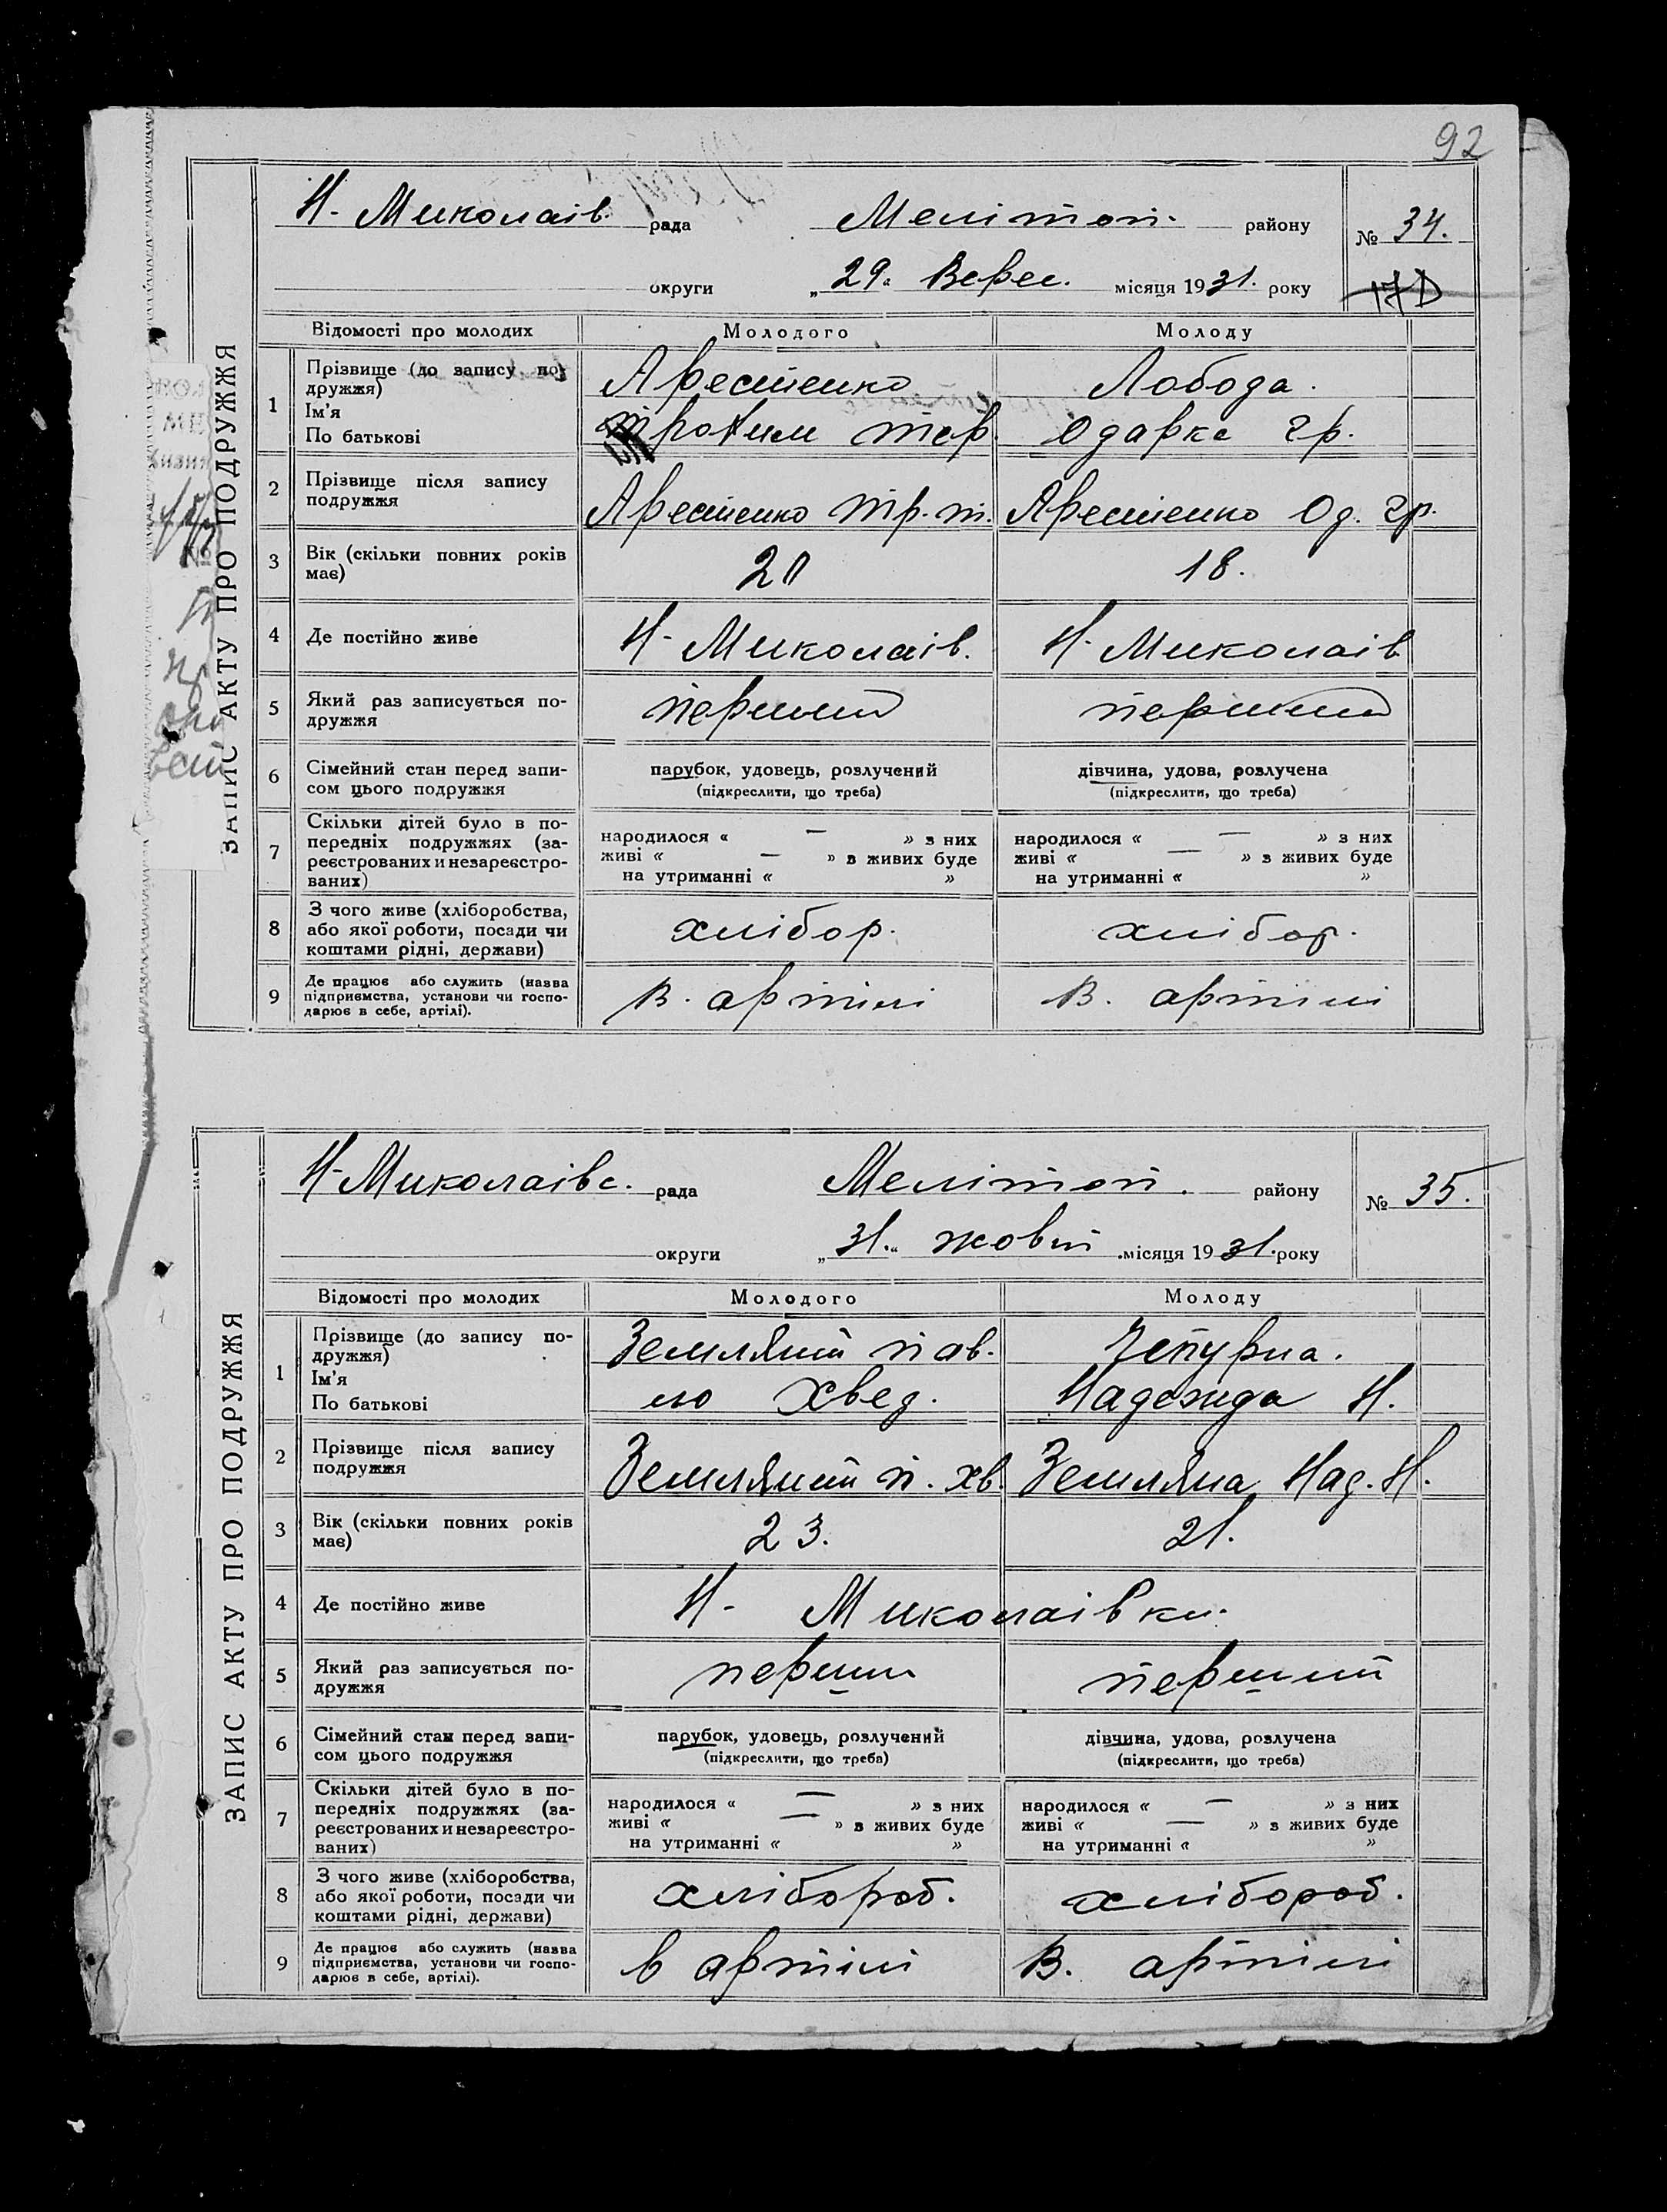 92
Н-Миколаїв. рада Мелітоп. району № 34.
округи „29" Верес. місяця 1931. року
17D
ЗАПИС АКТУ ПРО ПОДРУЖЖЯ
Відомості про молодих Молодого Молоду
1 Прізвище (до запису по-
дружжя) Арестенко Лобода.
Ім'я
По батькові Трохим Тер. Одарка Гр.
2 Прізвище після запису
подружжя Арестенко Тр. Т. Арестенко Од. Гр.
3 Вік (скільки повних років
має) 20 18.
4 Де постійно живе Н-Миколаїв. Н-Миколаїв
5 Який раз записується по-
дружжя перший перший
6 Сімейний стан перед запи-
сом цього подружжя
парубок, удовець, розлучений
(підкреслити, що треба)
дівчина, удова, розлучена
(підкреслити, що треба)
7 Скільки дітей було в по-
передніх подружжях (за-
реєстрованих и незареєстро-
ваних)
народилося « — » з них
живі « — » в живих буде
на утриманні « »
народилося « — » з них
живі « — » в живих буде
на утриманні « »
8 З чого живе (хліборобства,
або якої роботи, посади чи
коштами рідні, держави) хлібор. хлібор.
9 Де працює або служить (назва
підприємства, установи чи госпо-
дарює в себе, артілі). В. артілі В. артілі
Н-Миколаївс. рада Мелітоп. району № 35.
округи „31." жовт місяця 1931. року
ЗАПИС АКТУ ПРО ПОДРУЖЖЯ
Відомості про молодих Молодого Молоду
1 Прізвище (до запису по-
дружжя) Земляний Пав. Чепурна.
Ім'я
По батькові ло Хвед. Надежда Н.
2 Прізвище після запису
подружжя Земляний П. Хв. Земляна Над. Н.
3 Вік (скільки повних років
має) 23. 21.
4 Де постійно живе Н- Миколаївки.
5 Який раз записується по-
дружжя перши перший
6 Сімейний стан перед запи-
сом цього подружжя
парубок, удовець, розлучений
(підкреслити, що треба)
дівчина, удова, розлучена
(підкреслити, що треба)
7 Скільки дітей було в по-
передніх подружжях (за-
реєстрованих и незареєстро-
ваних)
народилося « — » з них
живі « — » в живих буде
на утриманні « »
народилося « — » з них
живі « — » в живих буде
на утриманні « »
8 З чого живе (хліборобства,
або якої роботи, посади чи
коштами рідні, держави) хлібороб. хлібороб.
9 Де працює або служить (назва
підприємства, установи чи госпо-
дарює в себе, артілі). в артілі В. артілі